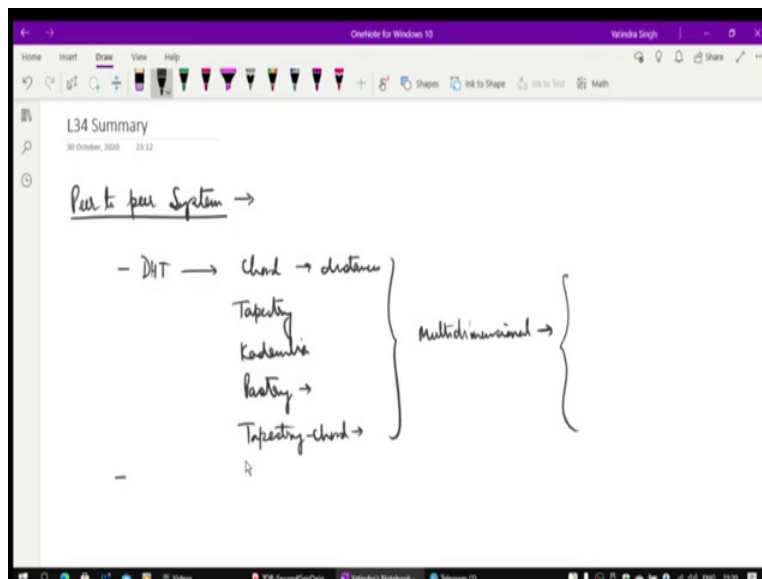 OneNote for Windows 10
Yatindra Singh
Home Insert Draw View Help
Share
Shapes Ink to Shape Ink to Text Math
L34 Summary
30 October, 2020 23:12
Peer to peer System →
- DHT → Chord → distance
Tapestry
Kademlia
Pastry →
Tapestry-Chord →
Multidimensional →
-